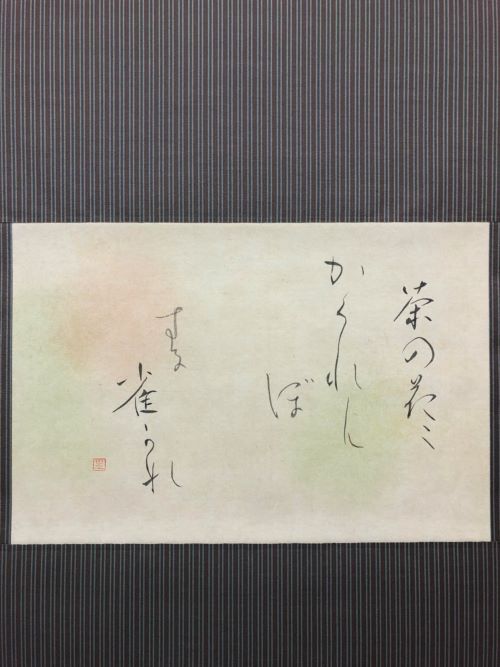 茶の花に
かくれん
ぼ
する
雀かな